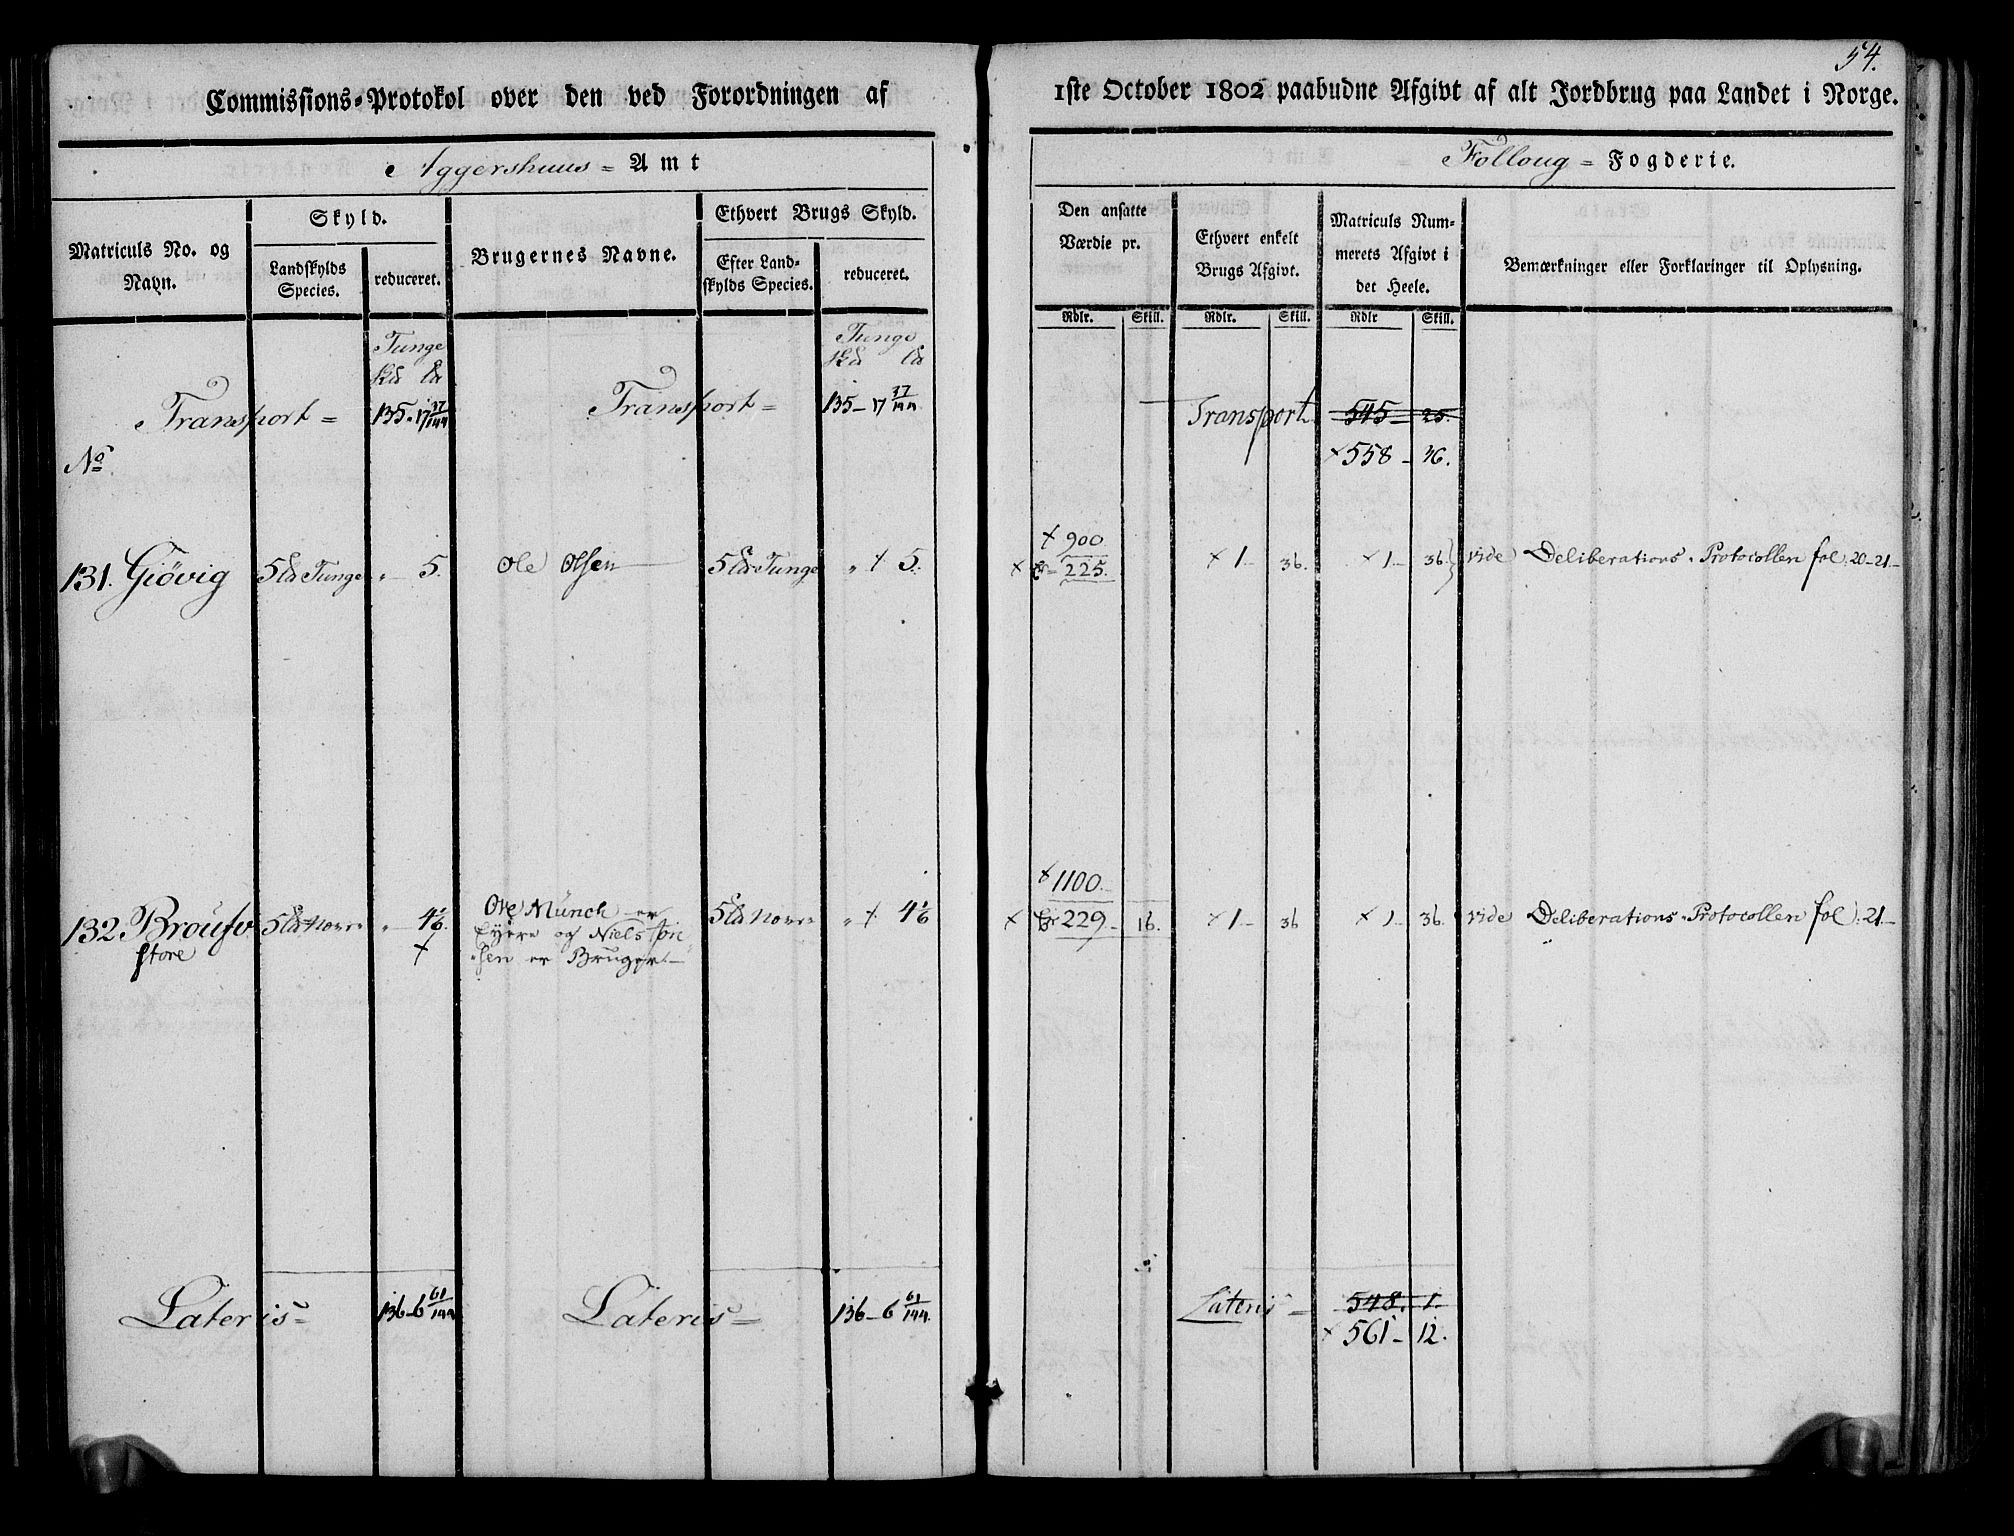 54.
Commissions-Protokol over den ved Forordningen af
1ste October 1802 paabudne Afgivt af alt Jordbrug paa Landet i Norge.
Aggershuus = Amt
Folloug = Fogderie.
Matriculs No. og Navn.
Skyld.
Landskylds Species.
reduceret.
Brugernes Navne.
Ethvert Brugs Skyld.
Efter Landskylds Species.
reduceret.
Den ansatte Værdie pr.
Ethvert enkelt Brugs Afgivt.
Matriculs Nummerets Afgivt i det Heele.
Bemærkninger eller Forklaringer til Oplysning.
Rdlr. Skill. Rdlr. Skill. Rdlr Skill.
Tunge Tunge
Transport = 135-17 37/144 Transport = 135-17 37/144 Transport 545-25.
558-36.
No
900
131. Giövig 5 Tunge " 5. Ole Olsen 5 Tunge " 5. 225. 1 36. 1 36. vide Deliberations-Protocollen fol. 20-21
1100
132 store " 4 1/6 Ole Münch er Eyere og Niels er Bruger 5 " 4 1/6 229 16. 1 36 1 36. vide Deliberations-Protocollen fol. 21
Lateris = 136-6 61/144 Lateris = 136-6 61/144. Lateris = 548. 1.
561-12.